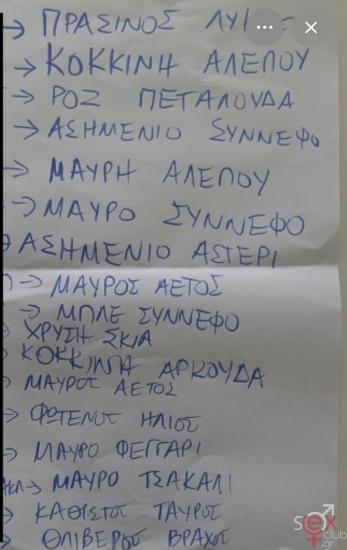 → ΠΡΑΣΙΝΟΣ
→ ΚΟΚΚΙΝΗ ΑΛΕΠΟΥ
→ ΡΟΖ ΠΕΤΑΛΟΥΔΑ
→ ΑΣΗΜΕΝΙΟ ΣΥΝΝΕΦΟ
→ ΜΑΥΡΗ ΑΛΕΠΟΥ
→ ΜΑΥΡΟ ΣΥΝΝΕΦΟ
ΑΣΗΜΕΝΙΟ ΑΣΤΕΡΙ
→ ΜΑΥΡΟΣ ΑΕΤΟΣ
→ ΜΠΛΕ ΣΥΝΝΕΦΟ
ΧΡΥΣΗ ΣΚΙΑ
ΚΟΚΚΙΝΗ ΑΡΚΟΥΔΑ
ΜΑΥΡΟΣ ΑΕΤΟΣ
→ ΦΩΤΕΝΟΣ ΗΛΙΟΣ
→ ΜΑΥΡΟ ΦΕΓΓΑΡΙ
→ ΜΑΥΡΟ ΤΣΑΚΑΛΙ
→ ΚΑΘΙΣΤΟΣ ΤΑΥΡΟΣ
ΘΛΙΒΕΡΟΣ ΒΡΑΧΟΣ
sex
club
.gr